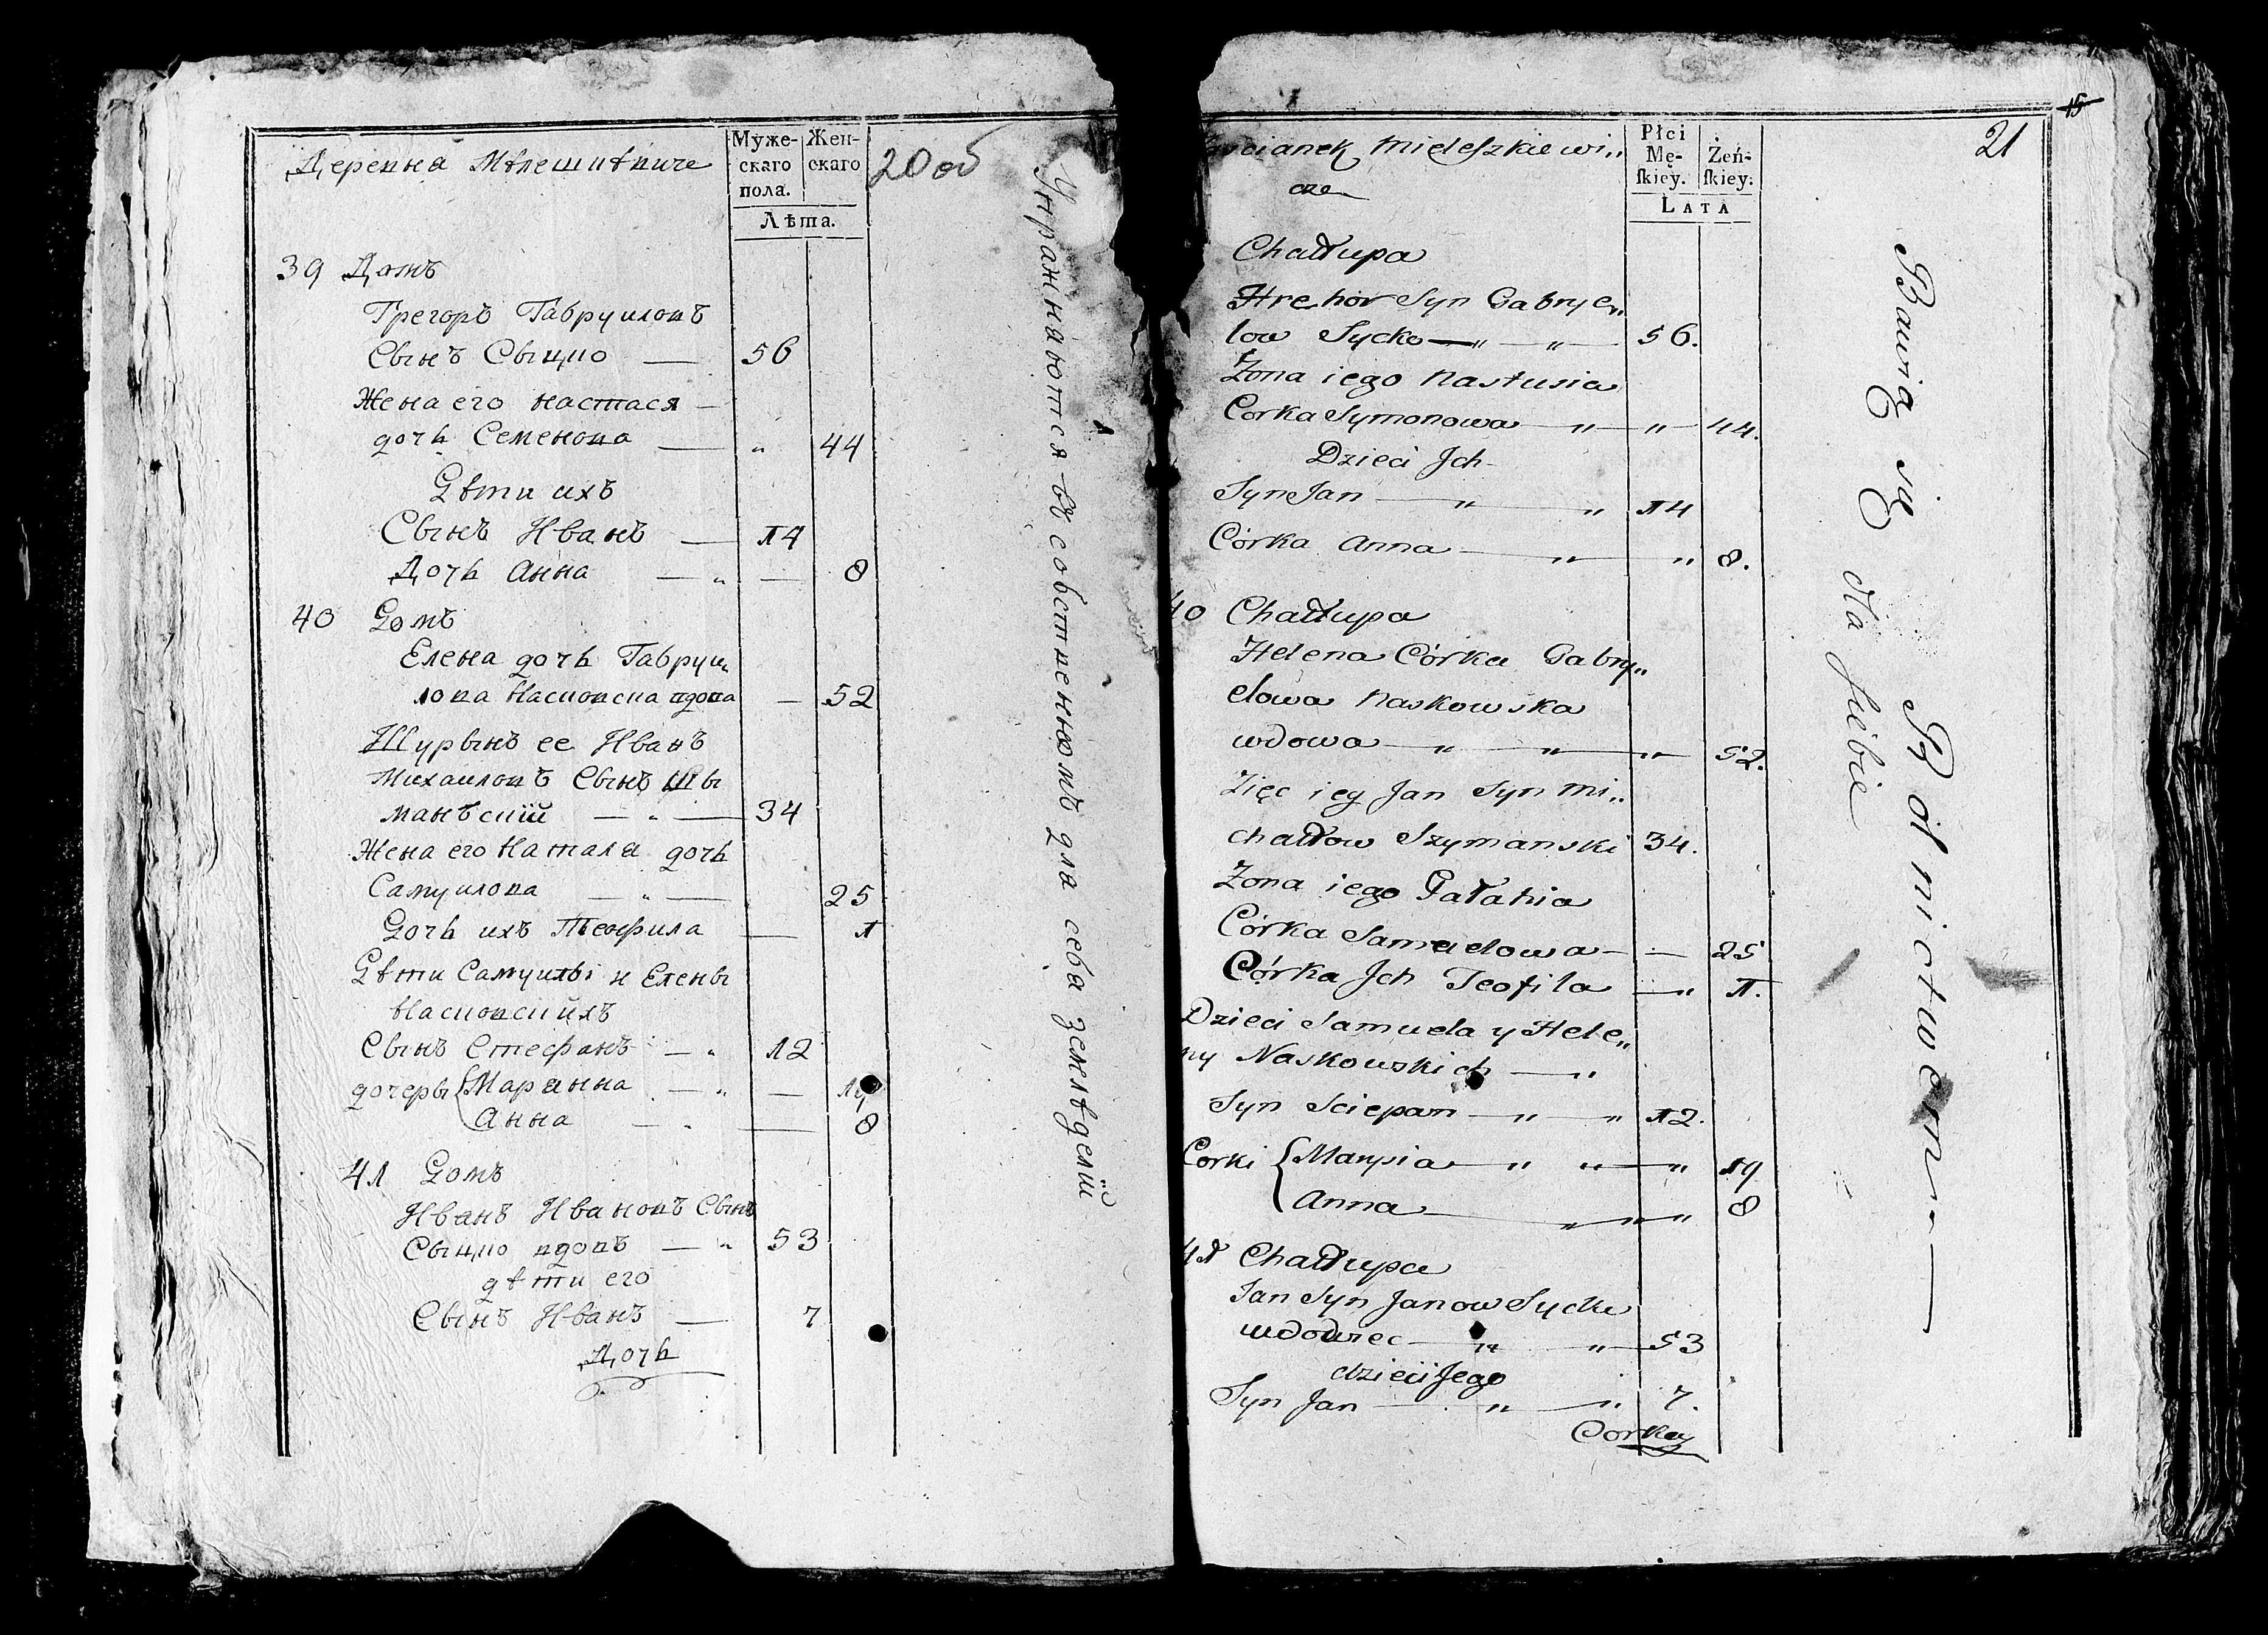 Деревня Мѣлешкѣвиче
Муже-
скаго
пола.
Жен-
скаго
Лѣта.
20 об
39 Домъ
Грегоръ Габруиловъ
Сынъ Сыцко — 56
Жена его Настася —
дочь Семенова — „ 44
Дѣти ихъ
Сынъ Иванъ — 14
Дочь Анна — „ — 8
40 Домъ
Елена дочь Габруи„
лова Насковска вдова — 52
Шурынъ ее Иванъ
Михаиловъ Сынъ Шы
манъский — „ — 34
Жена его Наталя дочь
Самуилова — „ — 25
Дочь ихъ Теофила — 1
Дѣти Самуилы и Елены
Насковскихъ
Сынъ Стефанъ — „ 12
дочеры Марянна — „ — 19
Анна — „ — 8
41 Домъ
Иванъ Ивановъ Сынъ
Сыцко вдовъ — „ 53
дѣти его
Сынъ Иванъ — 7
Дочь
Упражняются въ собственномъ для себя земледелій
15
21
scianek Mieleszkiewi„
cze
Płci
Mę-
skiey.
Żeń-
skiey:
LATA
Chałłupa
Hrehor Syn Gabrye„
low Sycko — „ — „ — 56.
Zona iego Nastusia
Corka Symonowa — „ — „ — 44.
Dzieci Jch
Syn Jan — „ „ 14
Córka Anna — „ „ 8.
40 Chałłupa
Helena Córka Gabry„
elowa Naskowska
wdowa — „ — „ — „ — 52.
Zięc iey Jan Syn Mi„
chałłow Szymanski 34.
Zona iego Hałahia
Córka Samuelowa — — 25
Córka Jch Teofila — „ 1.
Dzieci Samuela y Hele„
ny Naskowskich — „
Syn Sciepan — „ — „ 12.
Corki Marysia — „ „ — „ 19
Anna — „ — „ — „ 8
41 Chałłupa
Jan Syn Janow Sycko
wdowiec — „ „ — 53
dzieci Jego
Syn Jan — „ — „ 7.
Corka
Bawią się Rolnictwem —
dla siebie